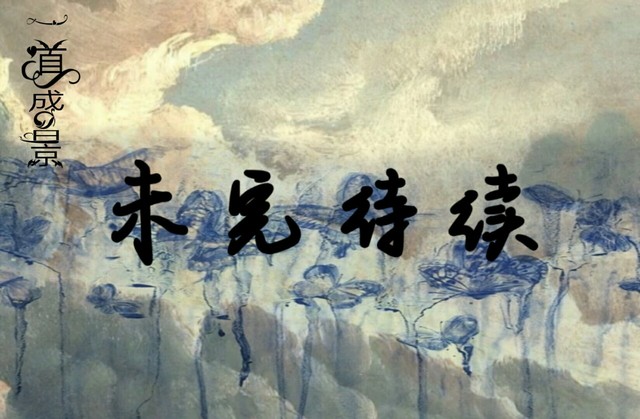 一道成景
未完待续